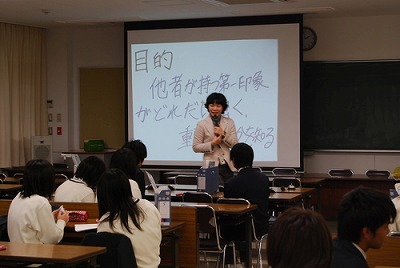 目的
他者が持つ第一印象
がどれだけ
重 を知る